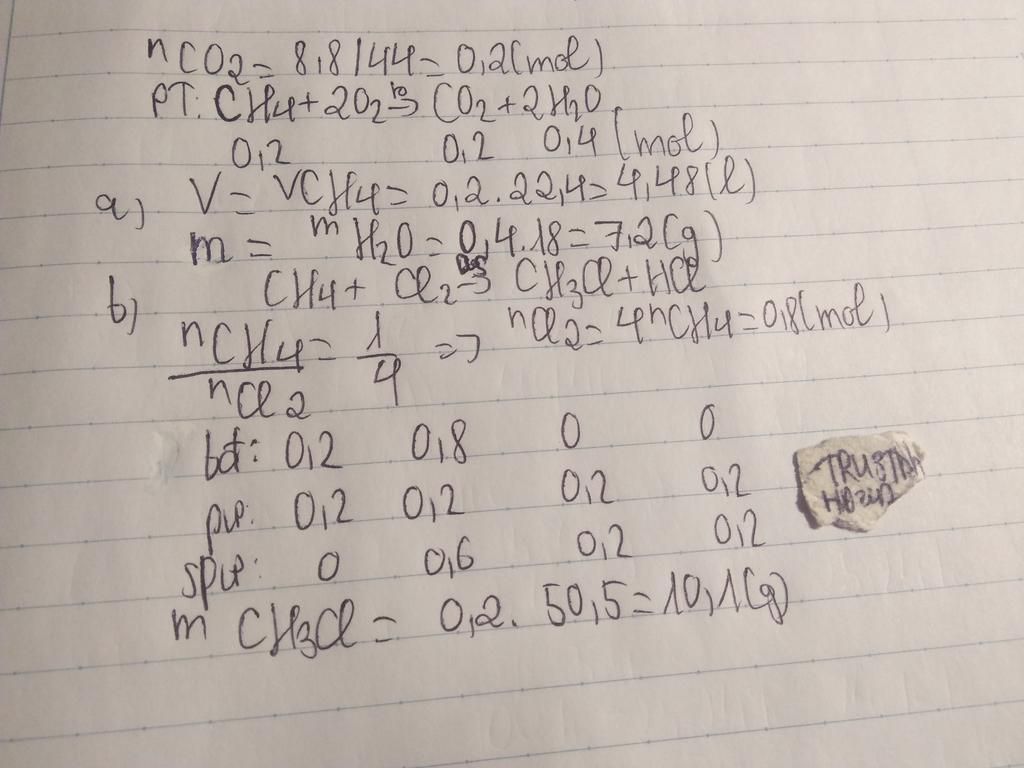 nCO2 = 8,8/44 = 0,2(mol)
PT: CH4 + 2O2 → CO2 + 2H2O
0,2 0,2 0,4 (mol)
a) V = VCH4 = 0,2.22,4 = 4,48(l)
m = mH2O = 0,4.18 = 7,2(g)
b) CH4 + Cl2 → CH3Cl + HCl
nCH4/nCl2 = 1/4 => nCl2 = 4nCH4 = 0,8(mol)
bđ: 0,2 0,8 0 0
pư: 0,2 0,2 0,2 0,2
spư: 0 0,6 0,2 0,2
m CH3Cl = 0,2. 50,5 = 10,1(g)